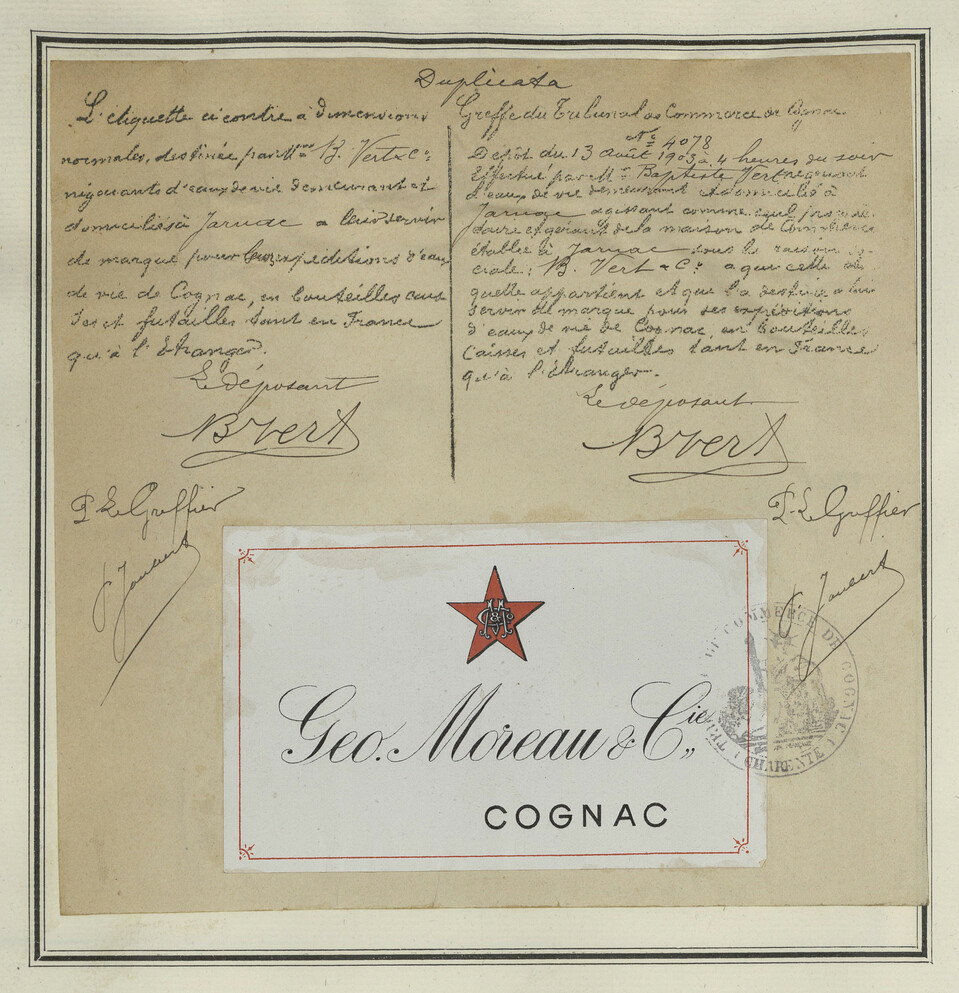 Duplicata
L'étiquette ci contre à dimensions
normales, destinée par Mrs B. Vert & Cº
négociants d'eaux de vie demeurant et
domiciliés à Jarnac a leur servir
de marque pour leurs expéditions d'eaux
de vie de Cognac, en bouteilles cais
ses et futailles tant en France
qu'à l'étranger.
Le déposant
B Vert
P. Le Greffier
Joubert
Greffe du Tribunal de Commerce de Cognac
Nº 4078
Dépôt du 13 août 1903 à 4 heures du soir
Effectué par Mr Baptiste Vert négociant
d'eaux de vie demeurant et domicilié à
Jarnac agissant comme seul proprié
taire et gérant de la maison de Commerce
établie à Jarnac sous la raison so
ciale: B. Vert & Cº a qui cette éti
quette appartient et qui l'a destinée a lui
servir de marque pour ses expéditions
d'eaux de vie de Cognac en bouteilles
Caisses et futailles tant en France
qu'à l'étranger.
Le déposant
B Vert
P. Le Greffier
Joubert
Geo. Moreau & Cie,,
COGNAC
COMMERCE DE COGNAC
CHARENTE